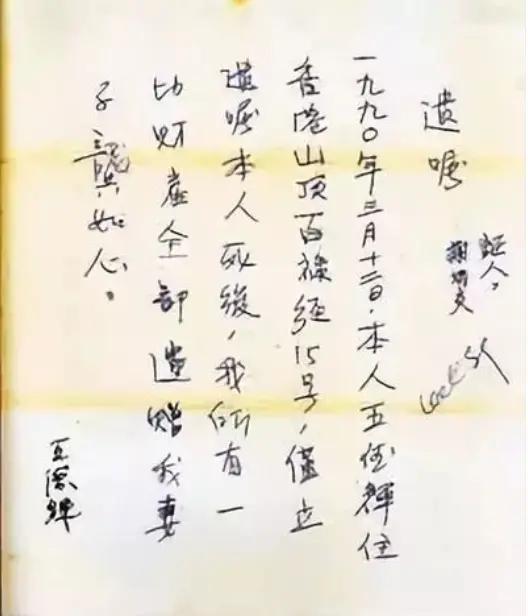 遺嘱
証人，
謝炳炎
一九九〇年三月十二日，本人王德輝住
香港山顶百祿徑15号，僅立
遺嘱本人死後，我所有一
切財產全部遺贈我妻
子龔如心。
王德輝